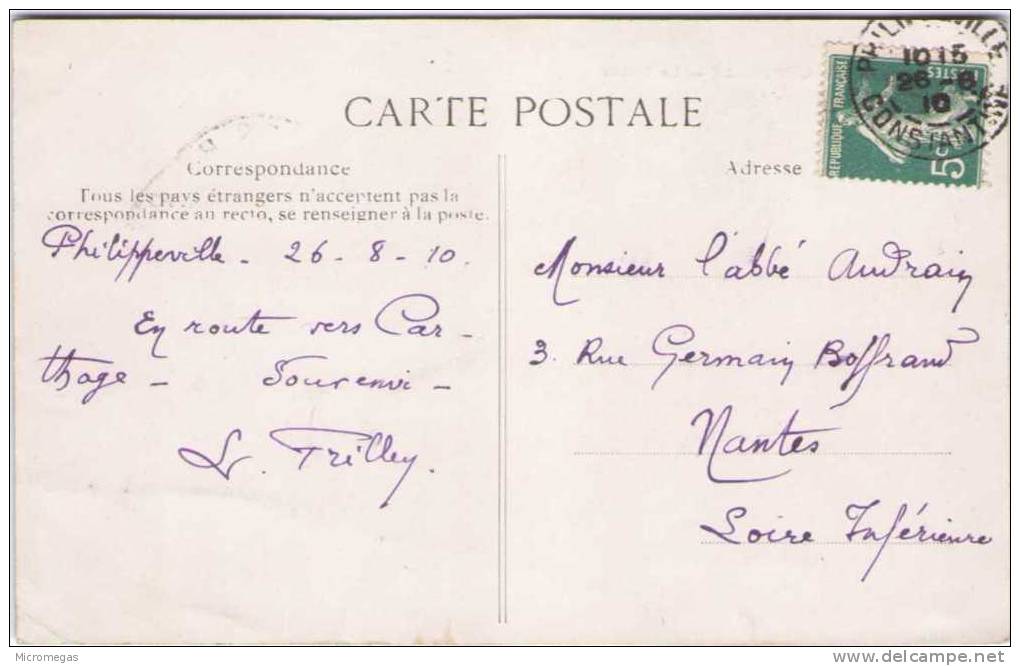 CARTE POSTALE
Correspondance
Tous les pays étrangers n'acceptent pas la
correspondance au recto, se renseigner à la poste.
Philippeville - 26 - 8 - 10.
En route vers Car-
thage - Souvenir -
L. Trilley.
Adresse
Monsieur l'abbé Audrain
3. Rue Germain Boffrand
Nantes
Loire Inférieure
REPUBLIQUE FRANÇAISE
POSTES
5c
10 15
26 - 8
10
CONSTANTINE
Micromegas
delcampe.net